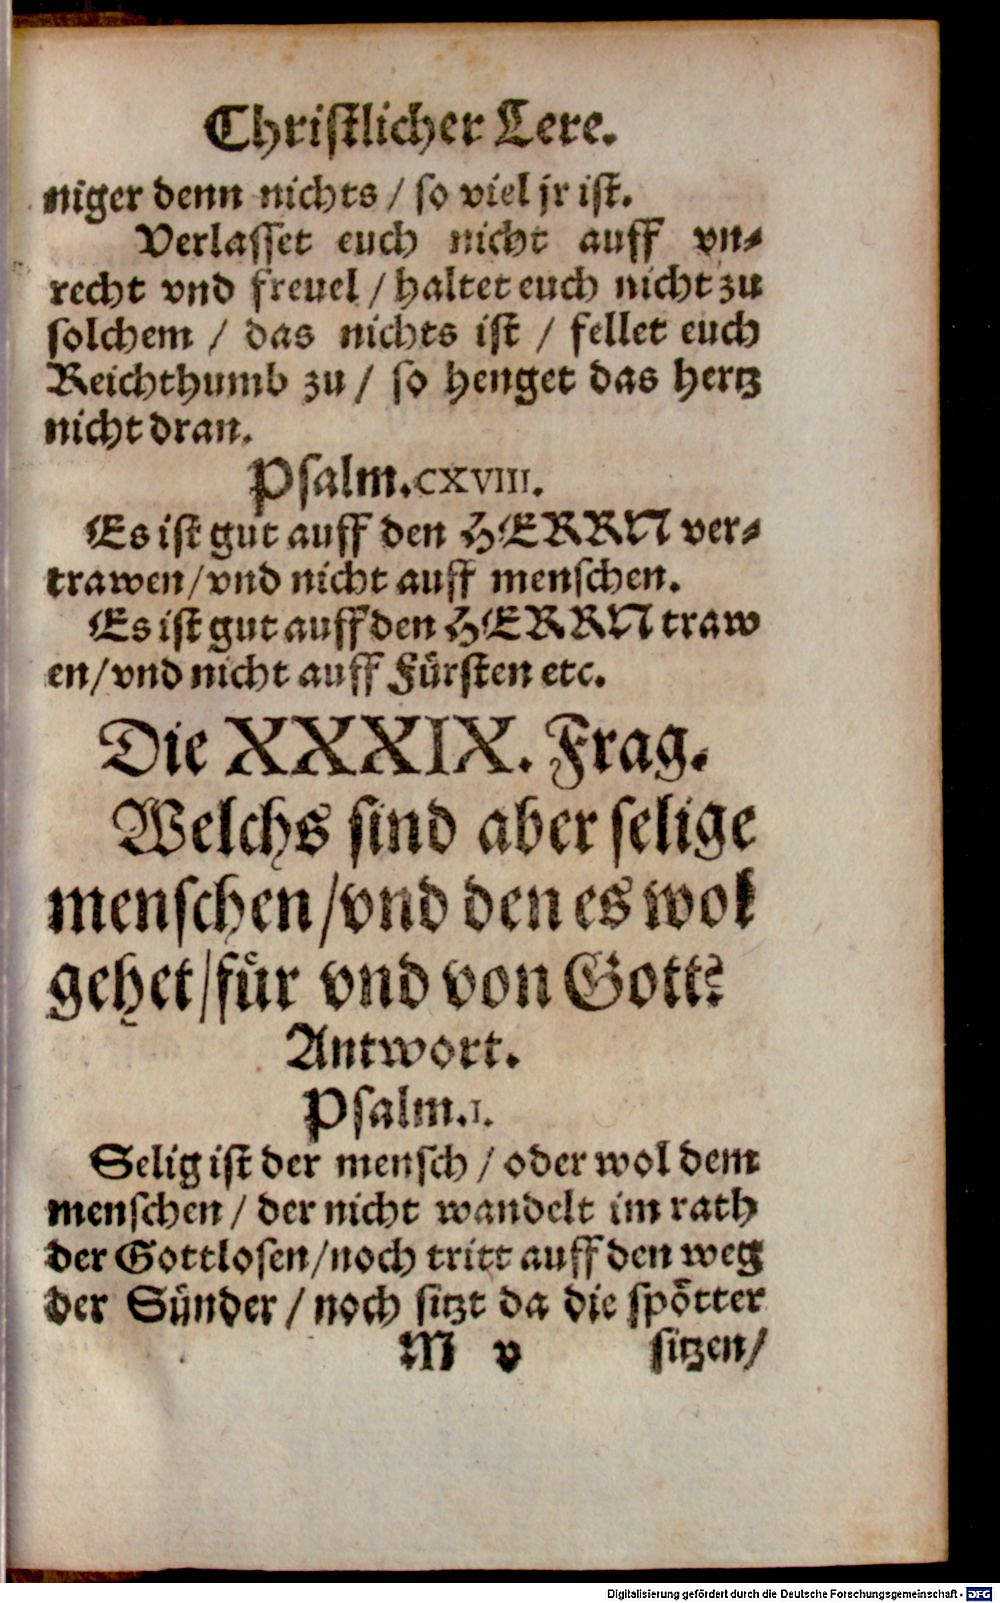 Christlicher Lere.
niger denn nichts / so viel jr ist.
Verlasset euch nicht auff vn⸗
recht vnd freuel / haltet euch nicht zu
solchem / das nichts ist / fellet euch
Reichthumb zu / so henget das hertz
nicht dran.
Psalm.CXVIII.
Es ist gut auff den HERRN ver⸗
trawen / vnd nicht auff menschen.
Es ist gut auff den HERRN traw
en / vnd nicht auff Fürsten etc.
Die XXXIX. Frag.
Welchs sind aber selige
menschen / vnd den es wol
gehet / für vnd von Gott?
Antwort.
Psalm.I.
Selig ist der mensch / oder wol dem
menschen / der nicht wandelt im rath
der Gottlosen / noch tritt auff den weg
der Sünder / noch sitzt da die spötter
M v sitzen /
Digitalisierung gefördert durch die Deutsche Forschungsgemeinschaft - DFG